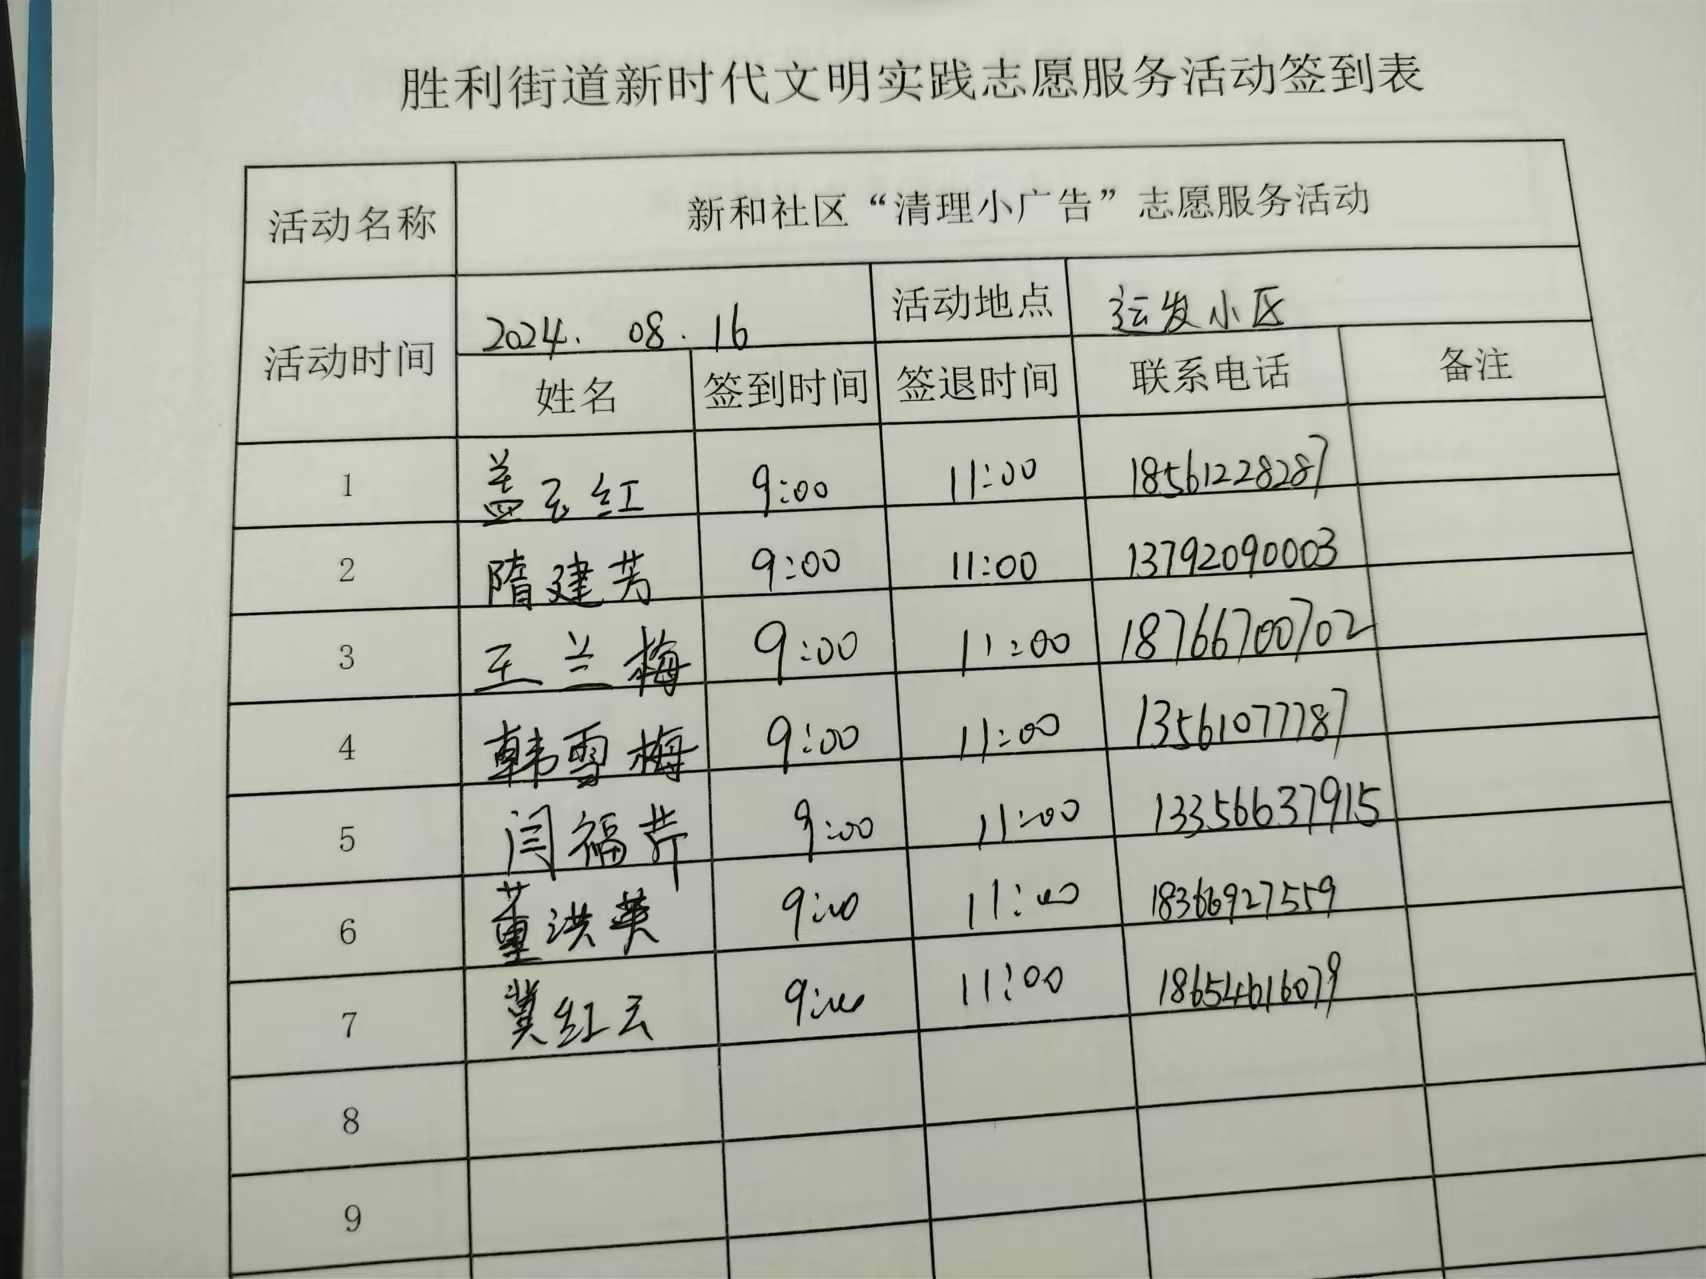 胜利街道新时代文明实践志愿服务活动签到表
活动名称 新和社区“清理小广告”志愿服务活动
活动时间 2024.08.16 活动地点 运发小区
姓名 签到时间 签退时间 联系电话 备注
1 盖云红 9:00 11:00 18561228287
2 隋建芳 9:00 11:00 13792090003
3 王兰梅 9:00 11:00 18766700702
4 韩雪梅 9:00 11:00 13561077787
5 闫福芹 9:00 11:00 13356637915
6 董洪英 9:00 11:00 18366927559
7 冀红云 9:00 11:00 18654616079
8
9